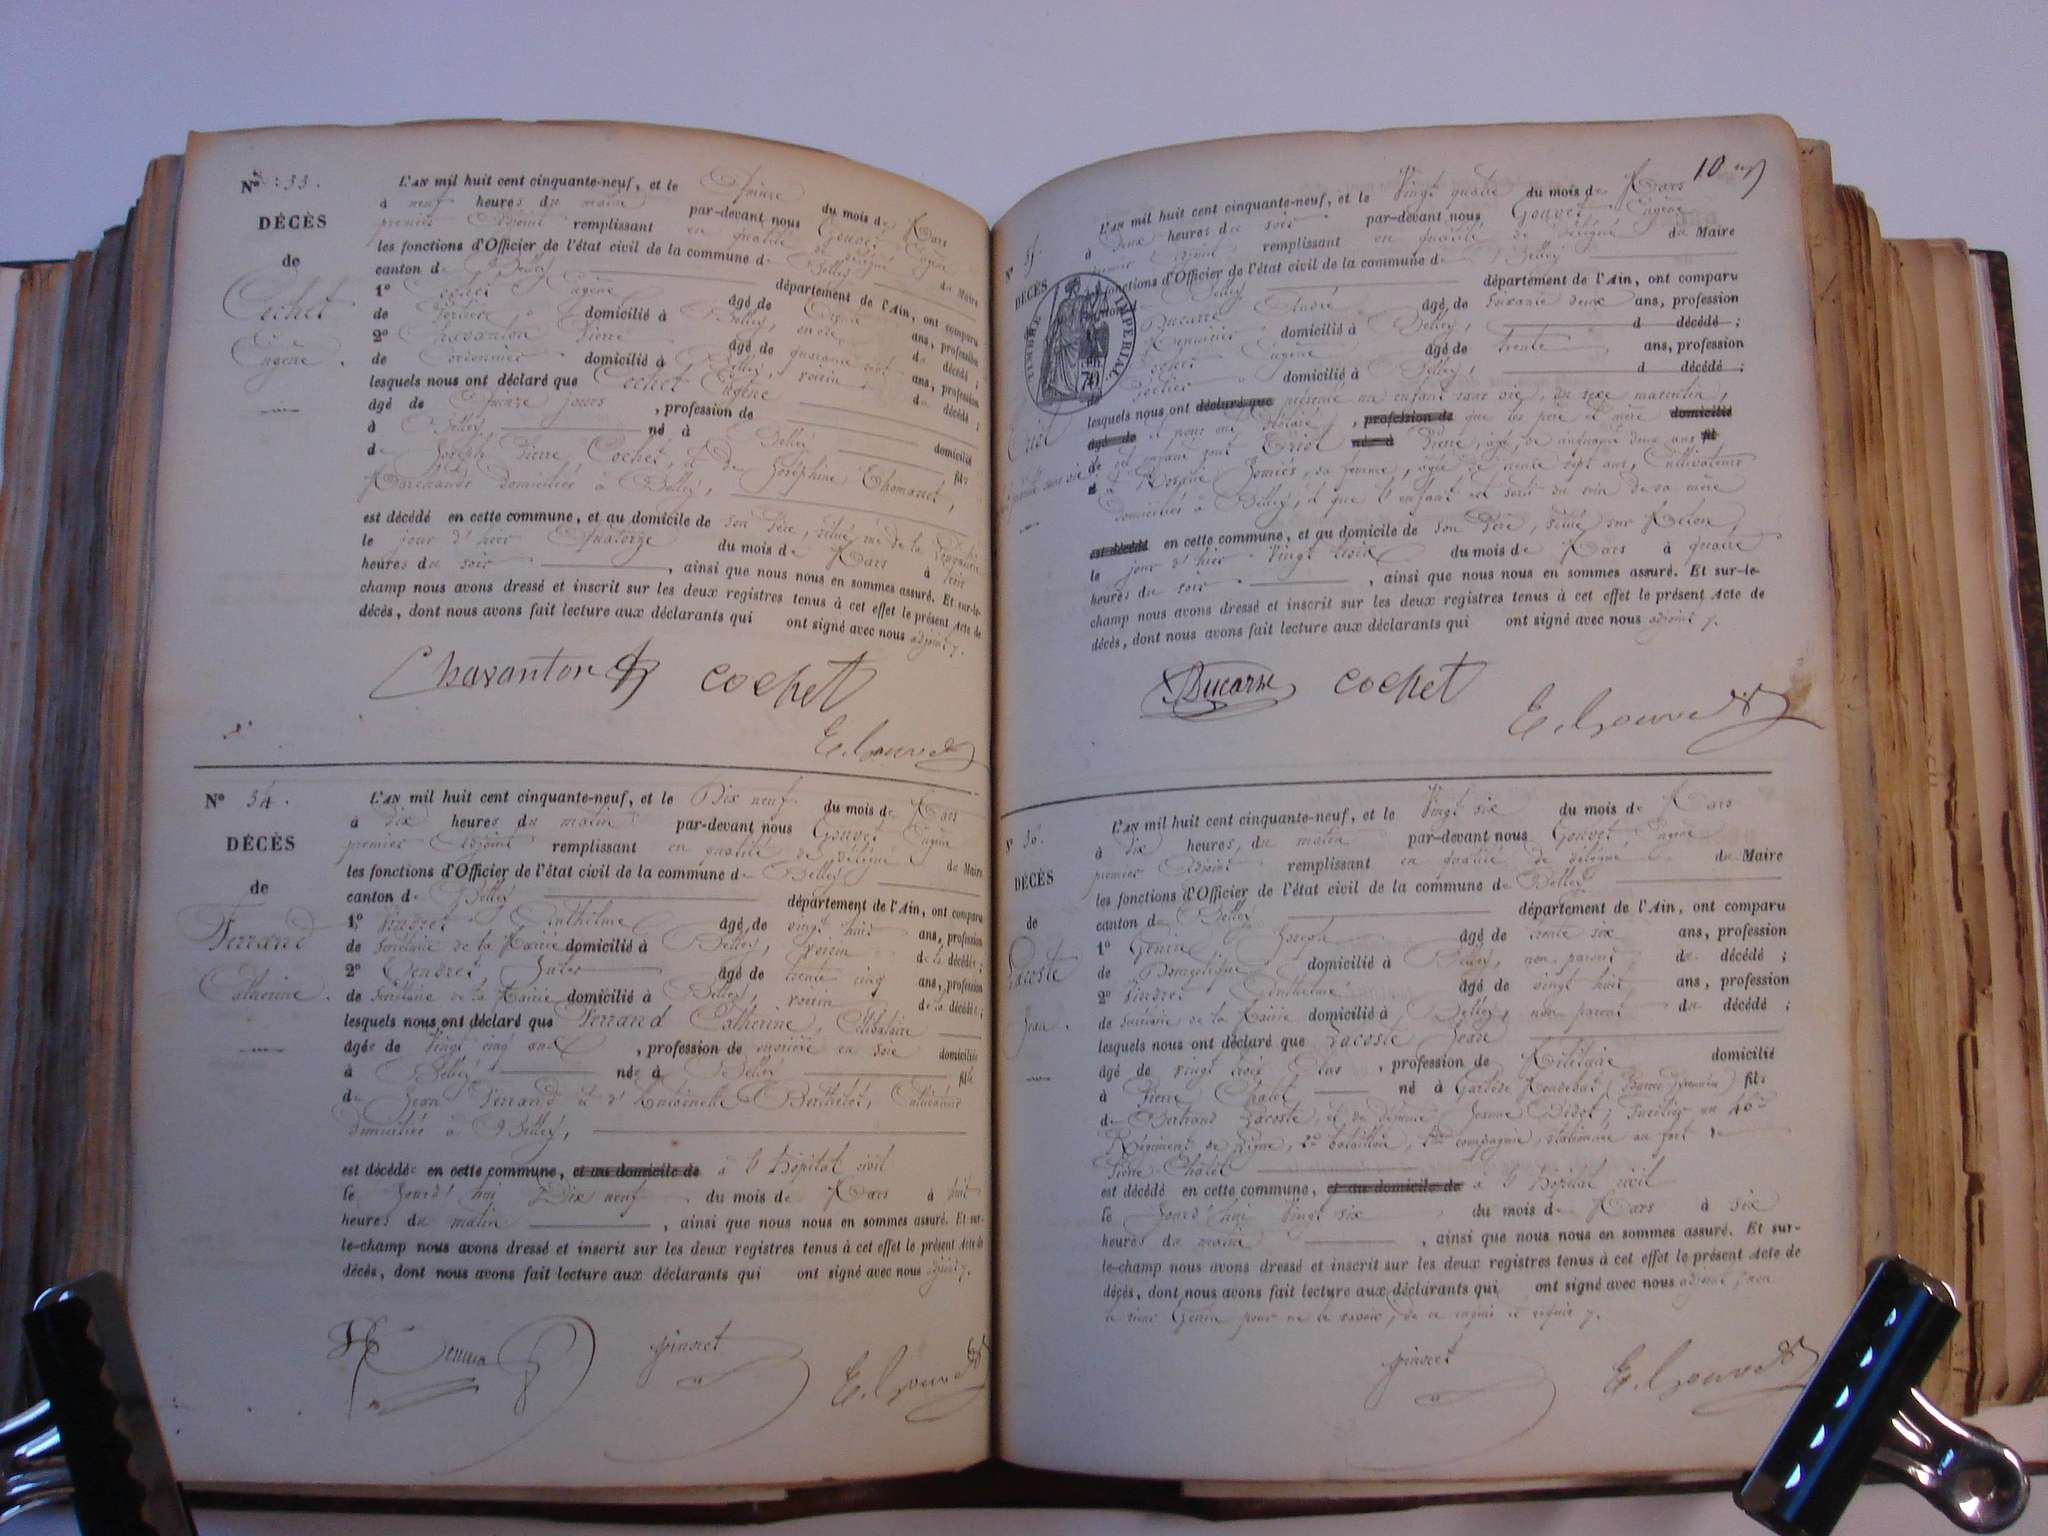 No 33.
DÉCÈS
de
Cochet
Eugène.
L'AN mil huit cent cinquante-neuf, et le Quinze du mois de Mars
à neuf heures du matin par-devant nous Gouvet Eugène
premier Adjoint remplissant en qualité de délégué du Maire
les fonctions d'Officier de l'état civil de la commune de Belley
canton de Belley département de l'Ain, ont comparu
1º Cochet Eugène âgé de ans, profession
de domicilié à Belley, oncle du décédé ;
2º Chavanton Pierre âgé de quarante sept ans, profession
de Cordonnier domicilié à Belley, voisin du décédé ;
lesquels nous ont déclaré que Cochet Eugène
âgé de Quinze jours, profession de domicilié
à Belley, né à Belley fils
de Joseph Pierre Cochet, et de Joséphine Thomasset,
Marchands domiciliés à Belley,
est décédé en cette commune, et au domicile de son Père, situé rue de la
le jour d'hier Quatorze du mois de Mars à trois
heures du soir, ainsi que nous nous en sommes assuré. Et sur-le-
champ nous avons dressé et inscrit sur les deux registres tenus à cet effet le présent Acte de
décès, dont nous avons fait lecture aux déclarants qui ont signé avec nous adjoint
Chavanton cochet
E. Gouvet
No 34.
DÉCÈS
de
Ferrand
Catherine.
L'AN mil huit cent cinquante-neuf, et le Dix neuf du mois de Mars
à dix heures du matin par-devant nous Gouvet Eugène
premier Adjoint remplissant en qualité de délégué du Maire
les fonctions d'Officier de l'état civil de la commune de Belley
canton de Belley département de l'Ain, ont comparu
1º Pindret Anthelme âgé de vingt huit ans, profession
de Secrétaire de la Mairie domicilié à Belley, voisin de la décédée ;
2º Gendret âgé de trente cinq ans, profession
de Secrétaire de la Mairie domicilié à Belley, voisin de la décédée ;
lesquels nous ont déclaré que Ferrand Catherine, Célibataire
âgée de Vingt cinq ans, profession de ouvrière en soie domiciliée
à Belley née à Belley fille
de Jean Ferrand et d'Antoinette Berthelet, Cultivateurs
domiciliés à Belley,
est décédée en cette commune, et au domicile de à l'hôpital civil
le Jourd'hui Dix neuf du mois de Mars à huit
heures du matin, ainsi que nous nous en sommes assuré. Et sur-
le-champ nous avons dressé et inscrit sur les deux registres tenus à cet effet le présent Acte de
décès, dont nous avons fait lecture aux déclarants qui ont signé avec nous adjoint
pindret
E. Gouvet
10
No
DÉCÈS
TIMBRE IMPERIAL
L'AN mil huit cent cinquante-neuf, et le Vingt quatre du mois de Mars
à deux heures du soir par-devant nous Gouvet Eugène
premier Adjoint remplissant en qualité de délégué du Maire
les fonctions d'Officier de l'état civil de la commune de Belley
Belley département de l'Ain, ont comparu
Ducarre André âgé de soixante deux ans, profession
Menuisier domicilié à Belley, d décédé ;
Cochet Eugène âgé de trente ans, profession
domicilié à Belley, d décédé ;
lesquels nous ont déclaré que présenté un enfant sans vie, du sexe masculin,
âgé de et nous ont déclaré, profession de que les père et mère domicilié
de cet enfant sont né à Pierre, âgé de cinquante deux ans fil
et Rosine sa femme, âgée de trente sept ans, Cultivateurs
domiciliés à Belley, et que l'enfant est sorti du sein de sa mère
est décédé en cette commune, et au domicile de son Père, situé
le jour d'hier Vingt trois du mois de Mars à quatre
heures du soir, ainsi que nous nous en sommes assuré. Et sur-le-
champ nous avons dressé et inscrit sur les deux registres tenus à cet effet le présent Acte de
décès, dont nous avons fait lecture aux déclarants qui ont signé avec nous adjoint
Ducarre cochet
E. Gouvet
No 36.
DÉCÈS
de
Lacoste
Jean.
L'AN mil huit cent cinquante-neuf, et le Vingt six du mois de Mars
à dix heures du matin par-devant nous Gouvet Eugène
premier Adjoint remplissant en qualité de délégué du Maire
les fonctions d'Officier de l'état civil de la commune de Belley
canton de Belley département de l'Ain, ont comparu
1º Genin Joseph âgé de trente six ans, profession
de Domestique domicilié à Belley, non parent du décédé ;
2º Pindret Anthelme âgé de vingt huit ans, profession
de Secrétaire de la Mairie domicilié à Belley, non parent du décédé ;
lesquels nous ont déclaré que Lacoste Jean
âgé de vingt trois ans, profession de Militaire domicilié
à Pierre Chatel né à fils
de Bertrand Lacoste, et de défunte Jeanne Fusilier au 46e
Régiment de Ligne, 2e bataillon, compagnie, stationnée au fort de
Pierre Chatel
est décédé en cette commune, et au domicile de à l'hôpital civil
le Jourd'hui Vingt six du mois de Mars à six
heures du matin, ainsi que nous nous en sommes assuré. Et sur-
le-champ nous avons dressé et inscrit sur les deux registres tenus à cet effet le présent Acte de
décès, dont nous avons fait lecture aux déclarants qui ont signé avec nous adjoint
le sieur Genin pour ne le savoir, de ce enquis et requis
pindret
E. Gouvet